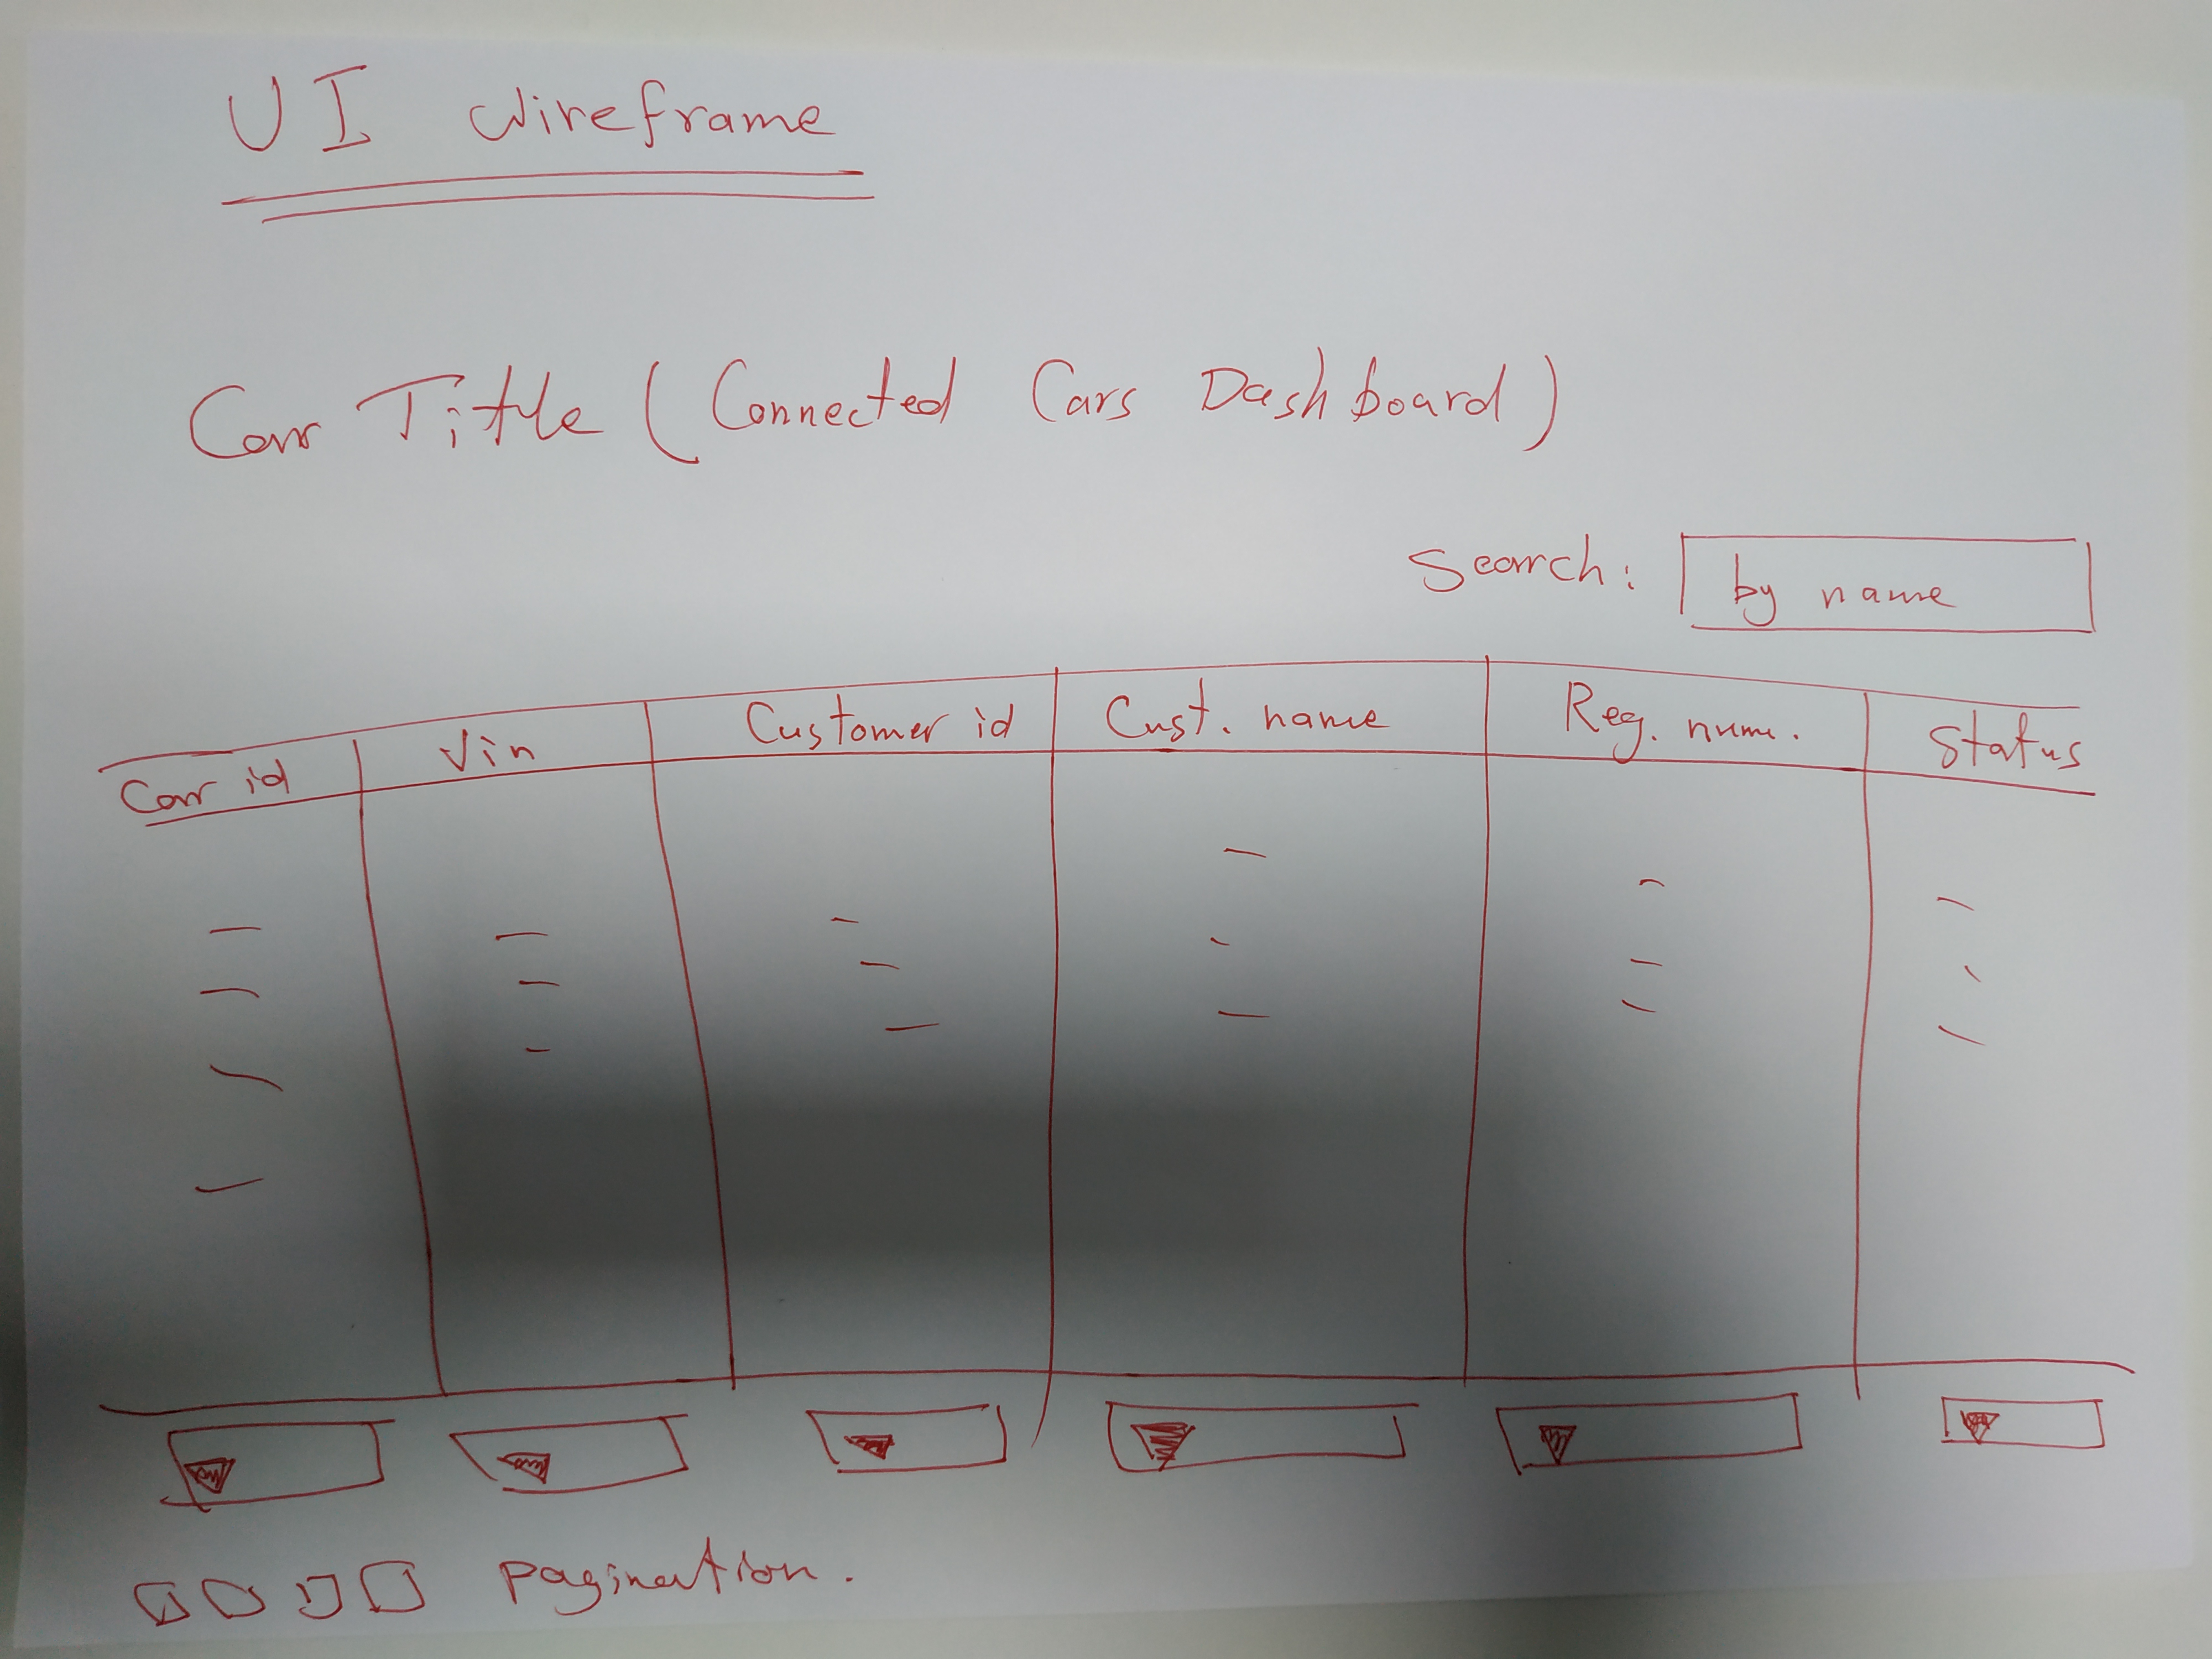 UI wireframe
Car Title (Connected Cars Dashboard)
Search: by name
Car id Vin Customer id Cust. name Reg. num. Status
Pagination.